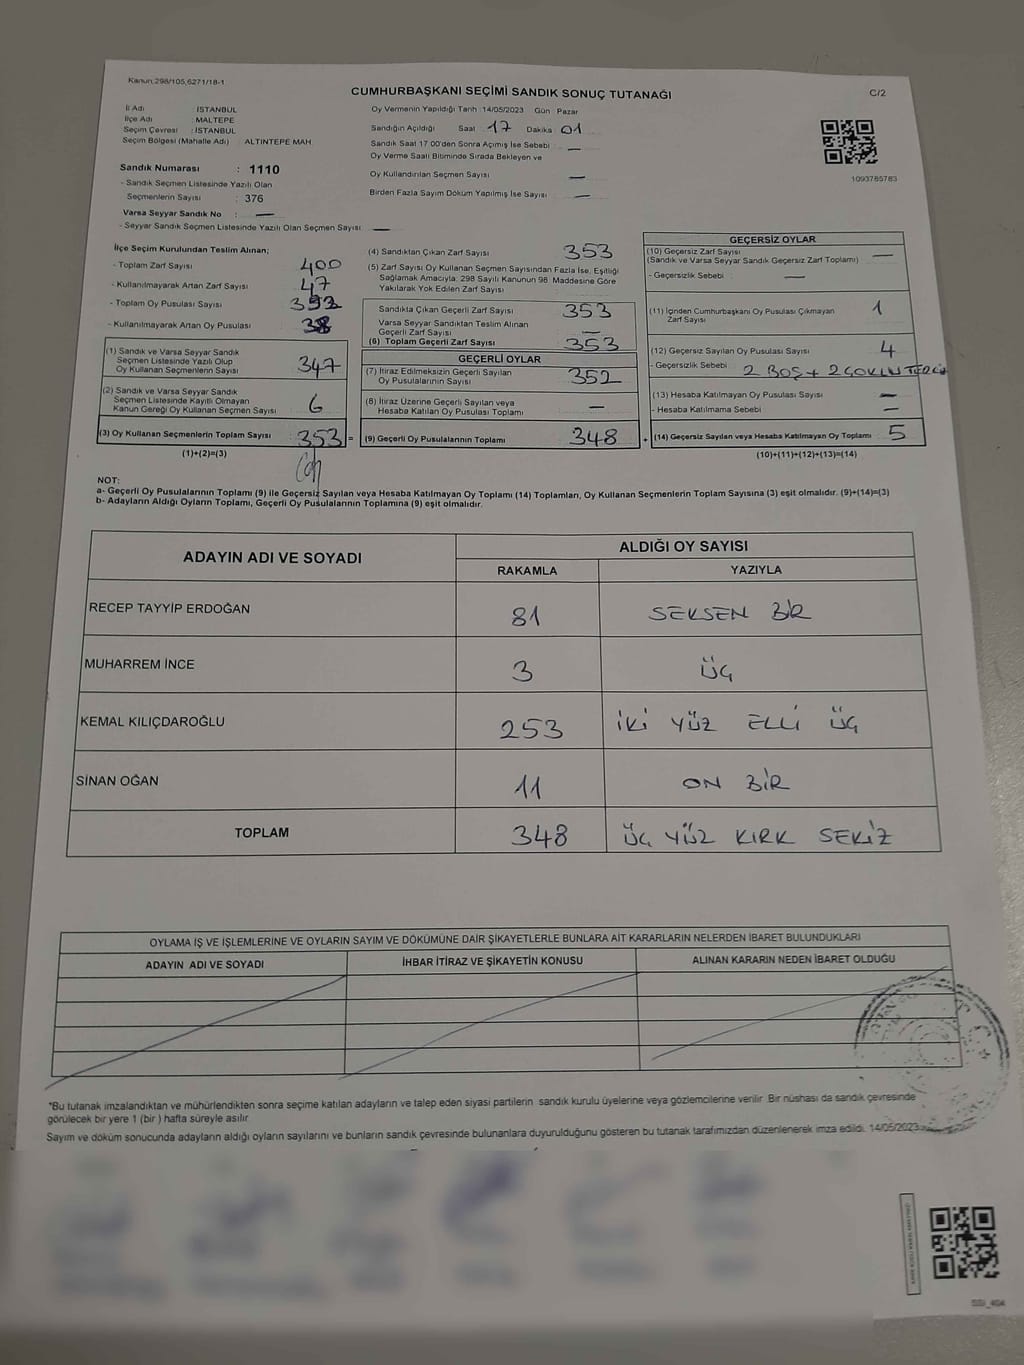 Kanun:298/105,6271/18-1
CUMHURBAŞKANI SEÇİMİ SANDIK SONUÇ TUTANAĞI
C/2
İl Adı : İSTANBUL
İlçe Adı : MALTEPE
Seçim Çevresi : İSTANBUL
Seçim Bölgesi (Mahalle Adı) : ALTINTEPE MAH
Sandık Numarası : 1110
- Sandık Seçmen Listesinde Yazılı Olan
Seçmenlerin Sayısı : 376
Varsa Seyyar Sandık No : —
- Seyyar Sandık Seçmen Listesinde Yazılı Olan Seçmen Sayısı —
Oy Vermenin Yapıldığı Tarih :14/05/2023 Gün : Pazar
Sandığın Açıldığı Saat : 17 Dakika : 01
Sandık Saat 17 00'den Sonra Açımış İse Sebebi : —
Oy Verme Saati Bitiminde Sırada Bekleyen ve
Oy Kullandırılan Seçmen Sayısı —
Birden Fazla Sayım Döküm Yapılmış İse Sayısı —
1093785783
İlçe Seçim Kurulundan Teslim Alınan;
- Toplam Zarf Sayısı 400
- Kullanılmayarak Artan Zarf Sayısı 47
- Toplam Oy Pusulası Sayısı
- Kullanılmayarak Artan Oy Pusulası
(1) Sandık ve Varsa Seyyar Sandık
Seçmen Listesinde Yazılı Olup
Oy Kullanan Seçmenlerin Sayısı 347
(2) Sandık ve Varsa Seyyar Sandık
Seçmen Listesinde Kayıtlı Olmayan
Kanun Gereği Oy Kullanan Seçmen Sayısı 6
(3) Oy Kullanan Seçmenlerin Toplam Sayısı 353 =
(1)+(2)=(3)
(4) Sandıktan Çıkan Zarf Sayısı 353
(5) Zarf Sayısı Oy Kullanan Seçmen Sayısından Fazla İse, Eşitliği
Sağlamak Amacıyla; 298 Sayılı Kanunun 98. Maddesine Göre
Yakılarak Yok Edilen Zarf Sayısı
Sandıkta Çıkan Geçerli Zarf Sayısı 353
Varsa Seyyar Sandıktan Teslim Alınan
Geçerli Zarf Sayısı —
(6) Toplam Geçerli Zarf Sayısı 353
GEÇERLİ OYLAR
(7) İtiraz Edilmeksizin Geçerli Sayılan
Oy Pusulalarının Sayısı 352
(8) İtiraz Üzerine Geçerli Sayılan veya
Hesaba Katılan Oy Pusulası Toplamı —
(9) Geçerli Oy Pusulalarının Toplamı 348 +
GEÇERSİZ OYLAR
(10) Geçersiz Zarf Sayısı
(Sandık ve Varsa Seyyar Sandık Geçersiz Zarf Toplamı) —
- Geçersizlik Sebebi : —
(11) İçinden Cumhurbaşkanı Oy Pusulası Çıkmayan
Zarf Sayısı 1
(12) Geçersiz Sayılan Oy Pusulası Sayısı 4
- Geçersizlik Sebebi 2 BOŞ + 2 ÇOKLU TERCİH
(13) Hesaba Katılmayan Oy Pusulası Sayısı —
- Hesaba Katılmama Sebebi —
(14) Geçersiz Sayılan veya Hesaba Katılmayan Oy Toplamı 5
(10)+(11)+(12)+(13)=(14)
NOT:
a- Geçerli Oy Pusulalarının Toplamı (9) ile Geçersiz Sayılan veya Hesaba Katılmayan Oy Toplamı (14) Toplamları, Oy Kullanan Seçmenlerin Toplam Sayısına (3) eşit olmalıdır. (9)+(14)=(3)
b- Adayların Aldığı Oyların Toplamı, Geçerli Oy Pusulalarının Toplamına (9) eşit olmalıdır.
ADAYIN ADI VE SOYADI
ALDIĞI OY SAYISI
RAKAMLA YAZIYLA
RECEP TAYYİP ERDOĞAN 81 SEKSEN BİR
MUHARREM İNCE 3 ÜÇ
KEMAL KILIÇDAROĞLU 253 İKİ YÜZ ELLİ ÜÇ
SİNAN OĞAN 11 ON BİR
TOPLAM 348 ÜÇ YÜZ KIRK SEKİZ
OYLAMA İŞ VE İŞLEMLERİNE VE OYLARIN SAYIM VE DÖKÜMÜNE DAİR ŞİKAYETLERLE BUNLARA AİT KARARLARIN NELERDEN İBARET BULUNDUKLARI
ADAYIN ADI VE SOYADI İHBAR İTİRAZ VE ŞİKAYETİN KONUSU ALINAN KARARIN NEDEN İBARET OLDUĞU
*Bu tutanak imzalandıktan ve mühürlendikten sonra seçime katılan adayların ve talep eden siyasi partilerin sandık kurulu üyelerine veya gözlemcilerine verilir. Bir nüshası da sandık çevresinde
görülecek bir yere 1 (bir ) hafta süreyle asılır.
Sayım ve döküm sonucunda adayların aldığı oyların sayılarını ve bunların sandık çevresinde bulunanlara duyurulduğunu gösteren bu tutanak tarafımızdan düzenlenerek imza edildi. 14/05/2023